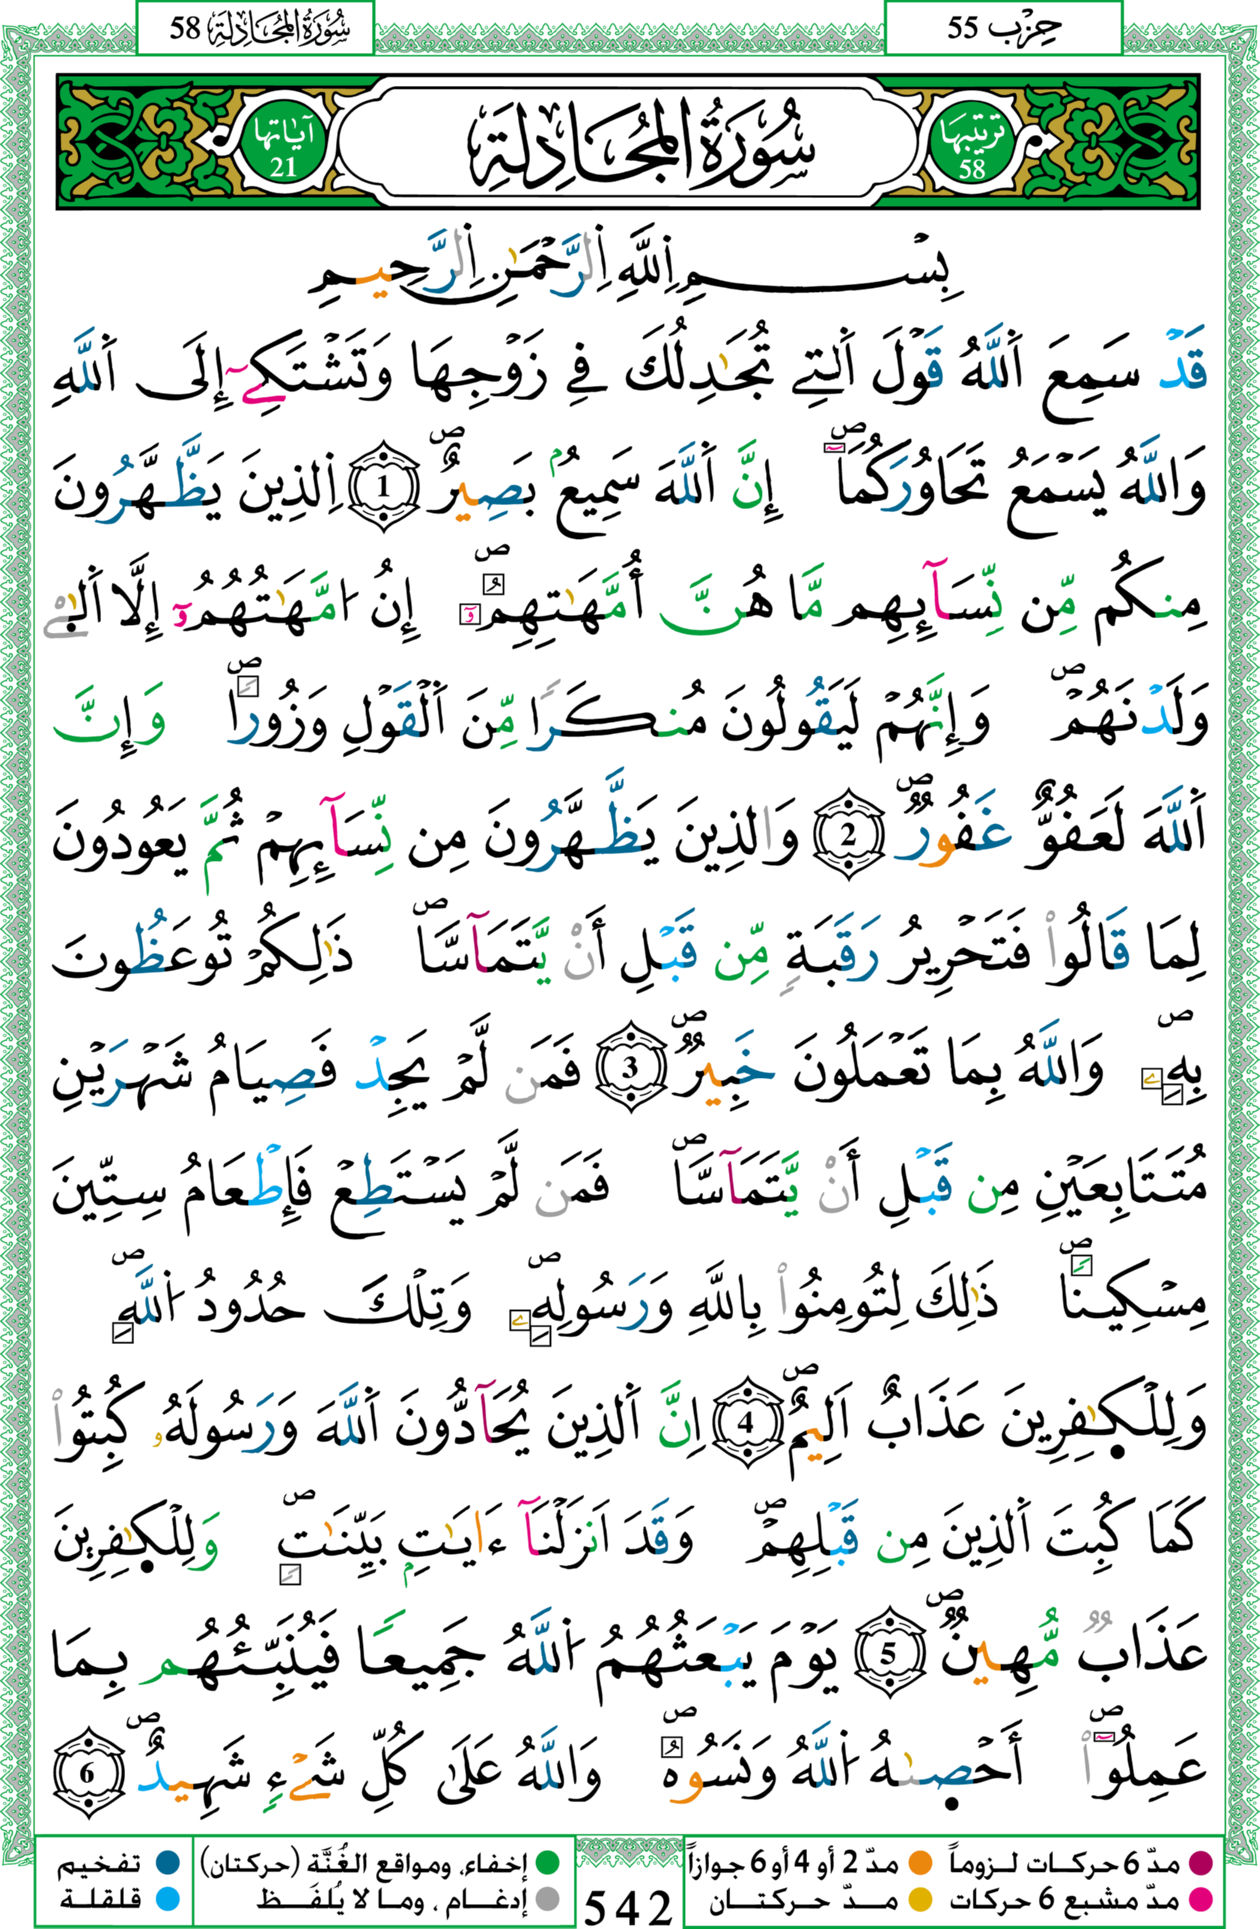 حِزْب 55
سُورَةُ المُجَادِلَةِ 58
ترتيبها 58
سُورَةُ المُجَادِلَةِ
آياتها 21
بِسْمِ اِللَّهِ اِلرَّحْمَٰنِ اِلرَّحِيمِ
قَدْ سَمِعَ اَللَّهُ قَوْلَ اَلتِے تُجَٰدِلُكَ فِے زَوْجِهَا وَتَشْتَكِےٓ إِلَى اَللَّهِ
وَاللَّهُ يَسْمَعُ تَحَاوُرَكُمَآ إِنَّ اَللَّهَ سَمِيعُۢ بَصِيرٌ 1 اِلذِينَ يَظَّهَّرُونَ
مِنكُم مِّن نِّسَآئِهِم مَّا هُنَّ أُمَّهَٰتِهِمُۥٓ إِنُ امَّهَٰتُهُمُۥٓ إِلَّا اَلَٰٓـِٔے
وَلَدْنَهُمْ وَإِنَّهُمْ لَيَقُولُونَ مُنكَراً مِّنَ اَلْقَوْلِ وَزُوراً وَإِنَّ
اَللَّهَ لَعَفُوٌّ غَفُورٌ 2 وَالذِينَ يَظَّهَّرُونَ مِن نِّسَآئِهِمْ ثُمَّ يَعُودُونَ
لِمَا قَالُواْ فَتَحْرِيرُ رَقَبَةٍ مِّن قَبْلِ أَنْ يَّتَمَآسَّا ذَٰلِكُمْ تُوعَظُونَ
بِهِۦ وَاللَّهُ بِمَا تَعْمَلُونَ خَبِيرٌ 3 فَمَن لَّمْ يَجِدْ فَصِيَامُ شَهْرَيْنِ
مُتَتَابِعَيْنِ مِن قَبْلِ أَنْ يَّتَمَآسَّا فَمَن لَّمْ يَسْتَطِعْ فَإِطْعَامُ سِتِّينَ
مِسْكِيناً ذَٰلِكَ لِتُومِنُواْ بِاللَّهِ وَرَسُولِهِۦ وَتِلْكَ حُدُودُ اُللَّهِ
وَلِلْكٰ۪فِرِينَ عَذَابٌ اَلِيمٌ 4 اِنَّ اَلذِينَ يُحَآدُّونَ اَللَّهَ وَرَسُولَهُۥ كُبِتُواْ
كَمَا كُبِتَ اَلذِينَ مِن قَبْلِهِمْ وَقَدَ اَنزَلْنَآ ءَايَٰتِۢ بَيِّنَٰتٍ وَلِلْكٰ۪فِرِينَ
عَذَابٌ مُّهِينٌ 5 يَوْمَ يَبْعَثُهُمُ اُللَّهُ جَمِيعاً فَيُنَبِّئُهُم بِمَا
عَمِلُوٓاْ أَحْص۪ىٰهُ اُللَّهُ وَنَسُوهُ وَاللَّهُ عَلَىٰ كُلِّ شَےْءٍ شَهِيدٌ 6
مدّ 6 حركات لـزومـاً مدّ 2 أو 4 أو 6 جوازاً
مدّ مشبع 6 حركات مـدّ حـركتـان
542
إخفاء، ومواقع الغُنَّة (حركتان) تفخيم
إدغـام ، ومـا لا يُلفَـظ قلقلة